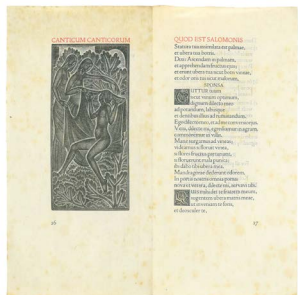 CANTICUM CANTICORUM
QUOD EST SALOMONIS
Statura tua assimilata est palmae,
et ubera tua botris.
Dixi: Ascendam in palmam,
et apprehendam fructus ejus:
et erunt ubera tua sicut botri vineae,
et odor oris tui sicut malorum.
SPONSA
GUTTUR tuum
sicut vinum optimum,
dignum dilecto meo
ad potandum, labiisque
et dentibus illius ad ruminandum.
Ego dilecto meo, et ad me conversio ejus.
Veni, dilecte mi, egrediamur in agrum,
commoremur in villis.
Mane surgamus ad vineas,
videamus si floruit vinea,
si flores fructus parturiunt,
si floruerunt mala punica:
ibi dabo tibi ubera mea.
Mandragorae dederunt odorem.
In portis nostris omnia poma:
nova et vetera, dilecte mi, servavi tibi.
QUIS mihi det te fratrem meum,
sugentem ubera matris meae,
ut inveniam te foris,
et deosculer te,
26
27